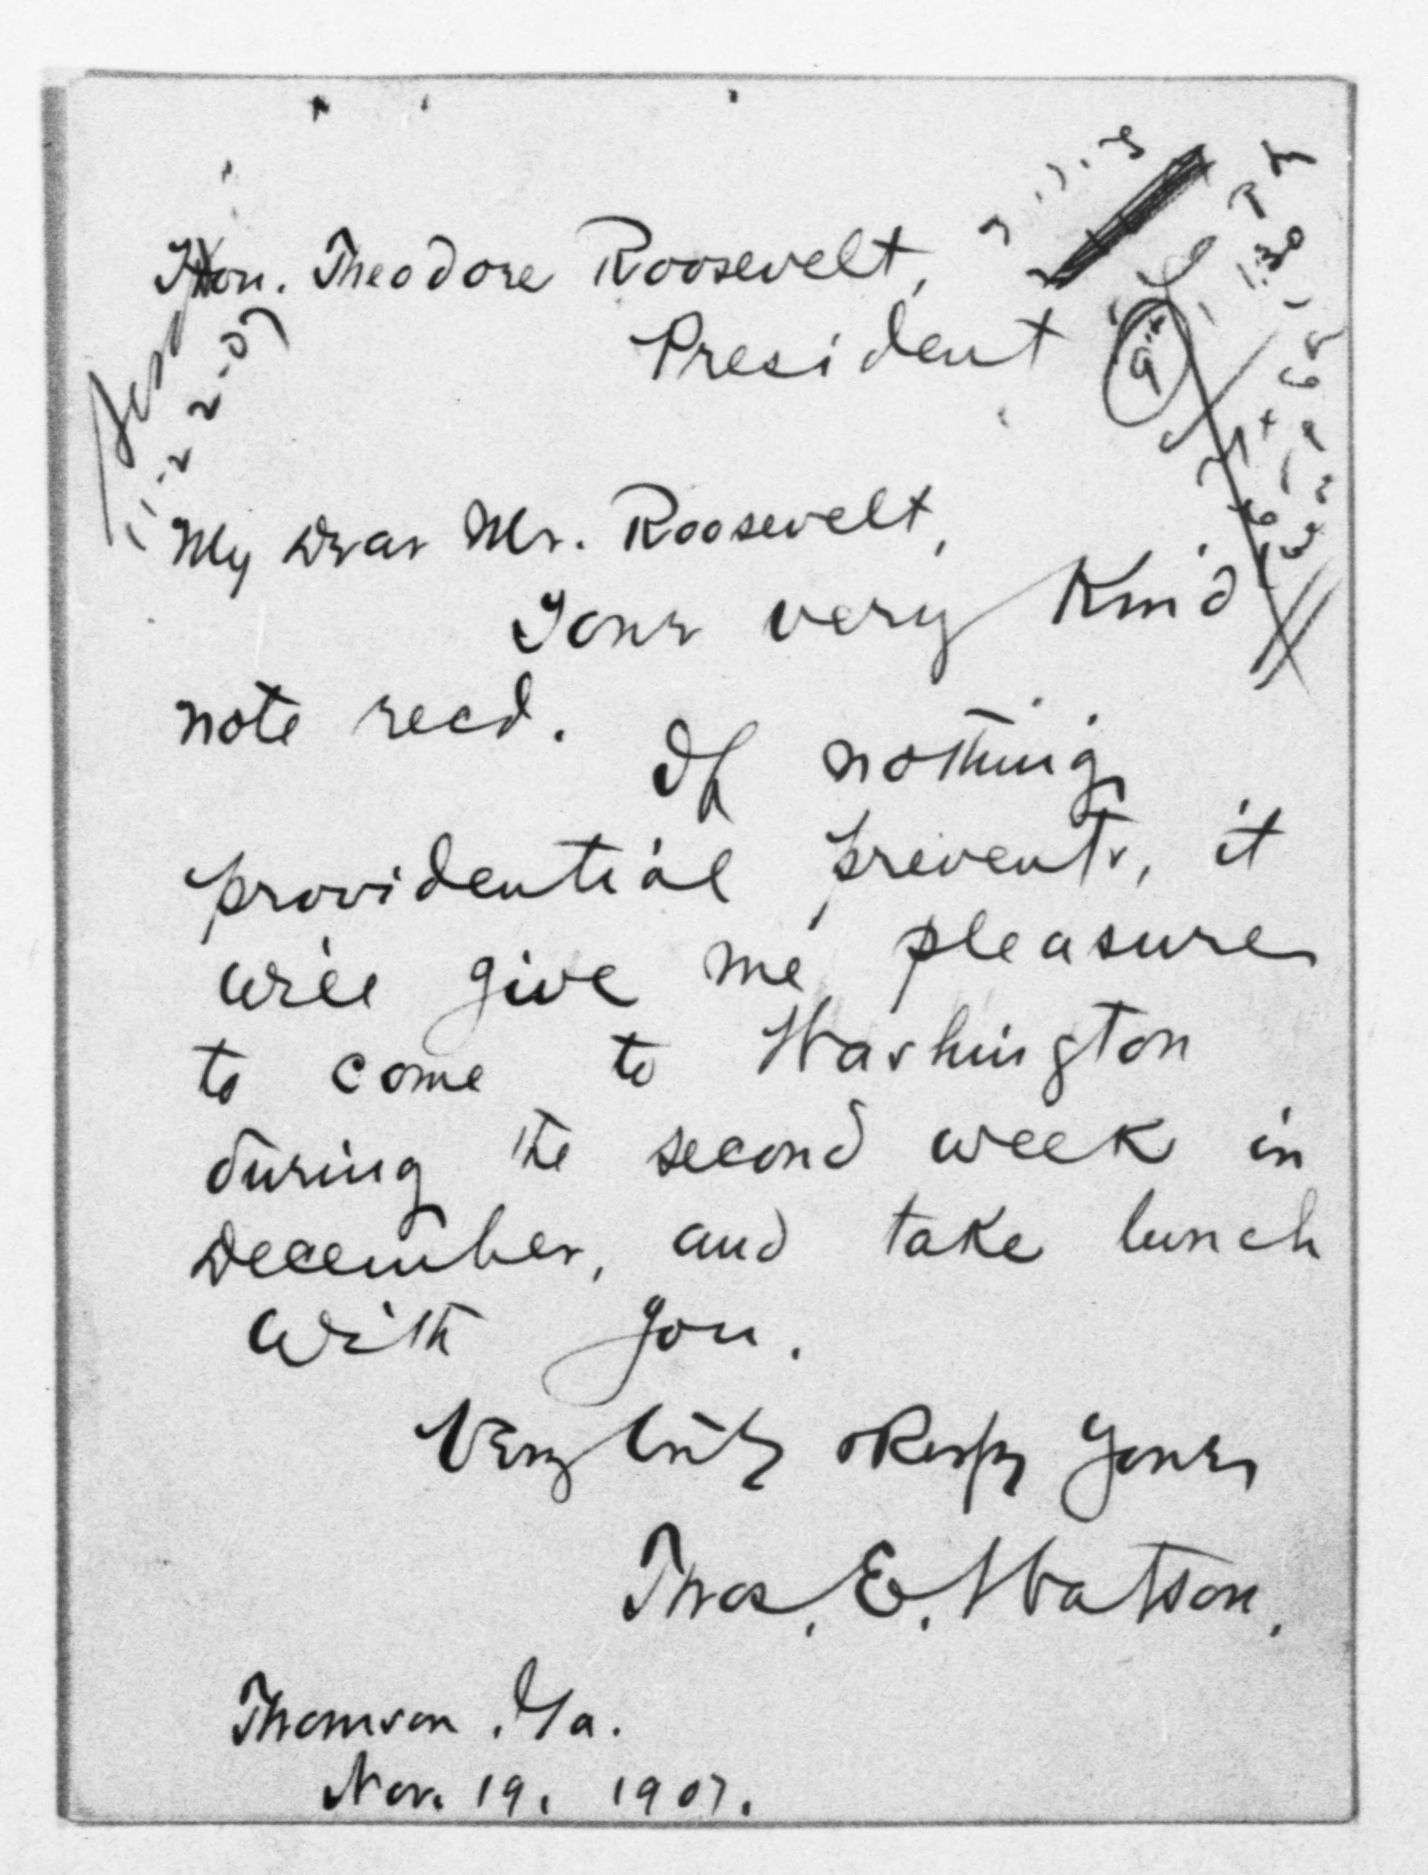 Hon. Theodore Roosevelt,
President
11-22-07
My Dear Mr. Roosevelt,
Your very kind
note recd. If nothing
providential prevents, it
will give me pleasure
to come to Washington
during the second week in
December, and take lunch
with you.
Very truly & Respy yours
Thos. E. Watson.
Thomson, Ga.
Nov. 19. 1907.